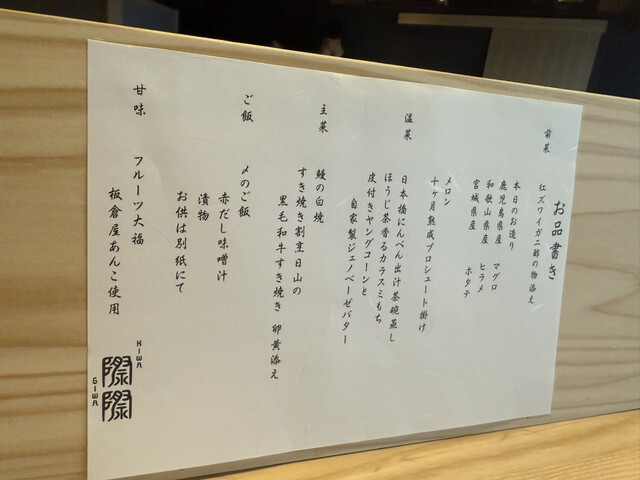 お品書き
前菜
紅ズワイガニ 酢の物添え
本日のお造り
鹿児島県産 マグロ
和歌山県産 ヒラメ
宮城県産 ホタテ
メロン
十ヶ月熟成プロシュート掛け
温菜
日本橋にんべん出汁茶碗蒸し
ほうじ茶香るカラスミもち
皮付きヤングコーンと
自家製ジェノベーゼバター
主菜
鰻の白焼
すき焼き割烹日山の
黒毛和牛すき焼き 卵黄添え
ご飯
〆のご飯
赤だし味噌汁
漬物
お供は別紙にて
甘味
フルーツ大福
板倉屋あんこ使用
KIWA
際際
GIWA